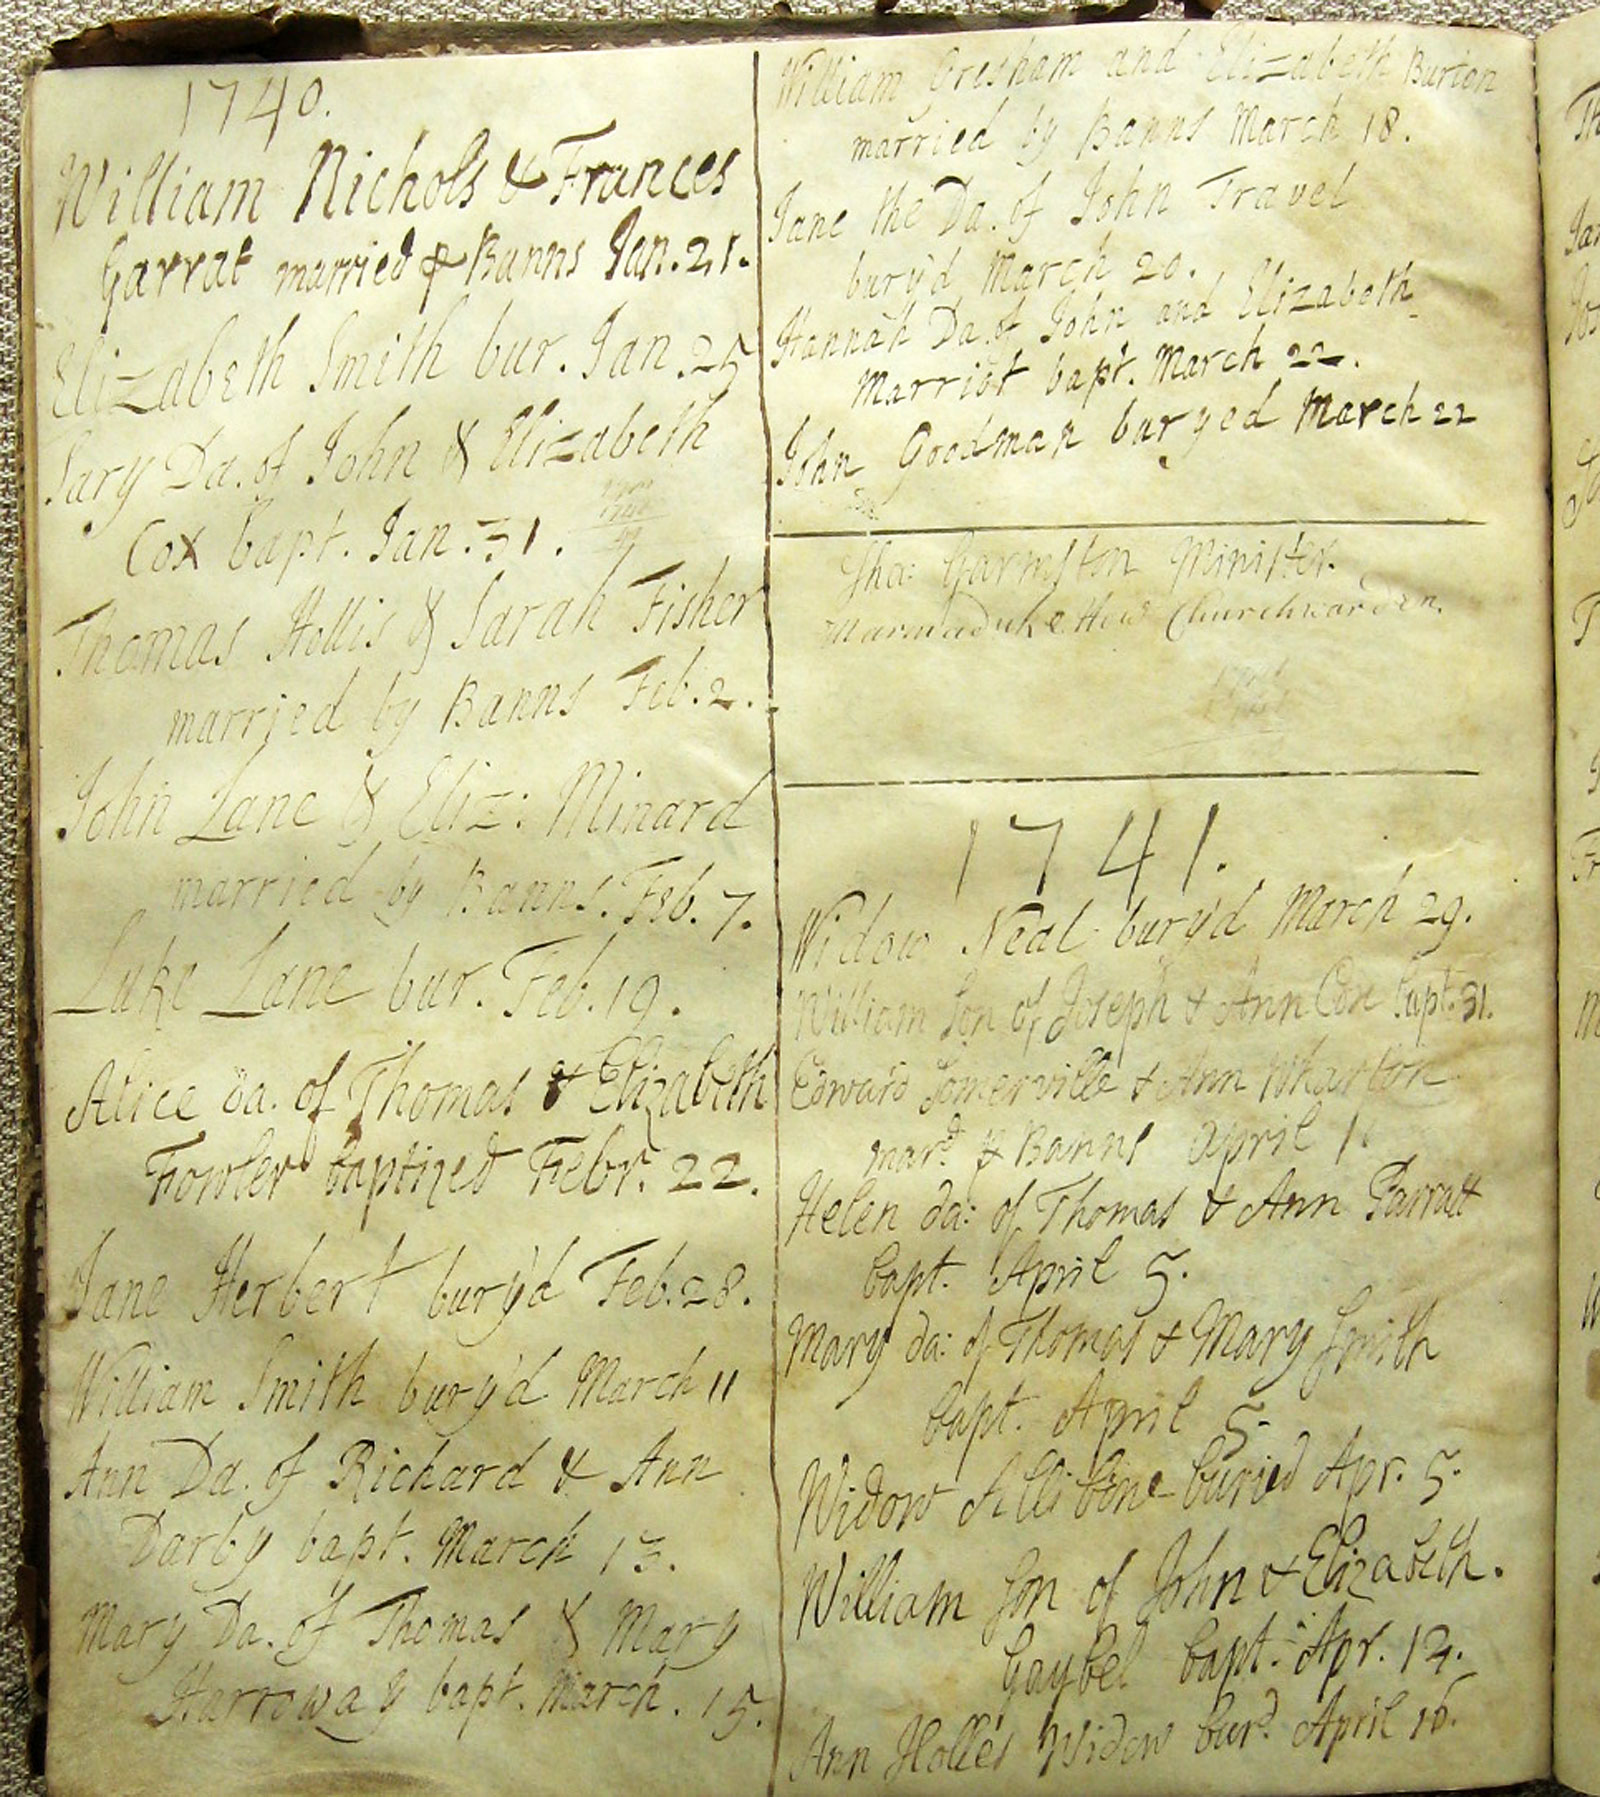 1740.
William Nichols & Frances
Garrat married ⅌ Banns Jan. 21.
Elizabeth Smith bur. Jan. 25
Sary Da. of John & Elizabeth
Cox bapt. Jan. 31.
Thomas Hollis & Sarah Fisher
married by Banns Feb. 2.
John Lane & Eliz: Minard
married by Banns. Feb. 7.
Luke Lane bur. Feb. 19.
Alice da. of Thomas & Elizabeth
Fowler baptized Febr. 22.
Jane Herbert bury'd Feb. 28.
William Smith bury'd March 11
Ann Da. of Richard & Ann
Darby bapt. March 13.
Mary Da. of Thomas & Mary
Harroway bapt. March. 15.
William Gresham and Elizabeth Burton
married by Banns March 18.
Jane the Da. of John Travel
bury'd March 20.
Hannah Da. of John and Elizabeth
Marriot bapt. March 22.
John Goodman buryed March 22
Garmston Minister.
Marmaduke How Churchwarden.
1741.
Widow Neal bury'd March 29.
William Son of Joseph & Ann Cox bapt. 31.
Edward Somerville & Ann Wharton
mard. ⅌ Banns April 1.
Helen da: of Thomas & Ann Parratt
bapt. April 5.
Mary da: of Thomas & Mary Smith
bapt. April 5.
Widow Allibone buried Apr. 5.
William Son of John & Elizabeth.
Gaybel bapt. Apr. 12.
Ann Holles Widow burd. April 16.